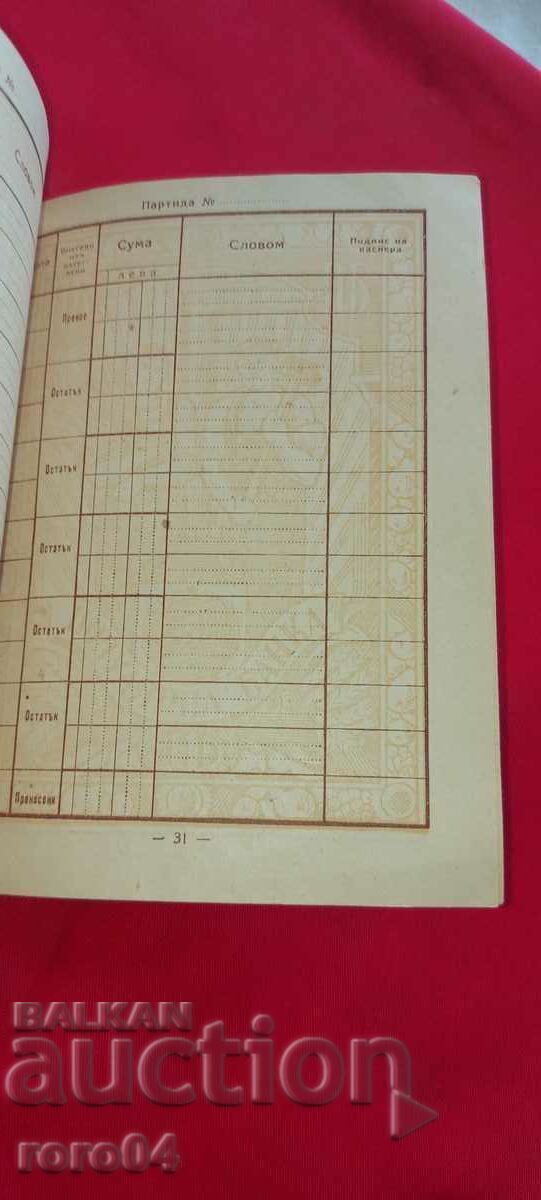 Партида №
Сума
Словом
Подпис на касиера
лева
Пренос
Остатък
Остатък
Остатък
Остатък
Остатък
Пренасени
— 31 —
BALKAN
auction
roro04